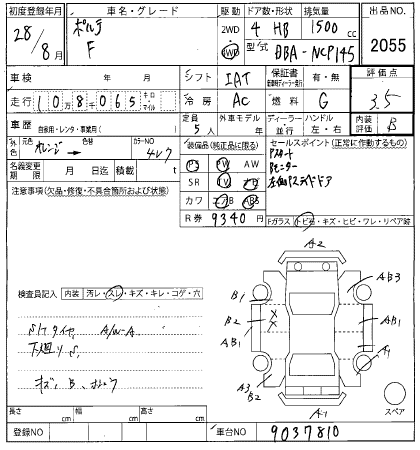 初度登録年月 車名・グレード 駆動 ドア数・形状 排気量 出品NO.
28/8月 ポルテ F 2WD 4WD 4 HB 1500cc 2055
型式 DBA-NCP145
車検 年 月 シフト IAT 保証書 有・無 評価点
走行 108065 キロ・マイル 冷房 AC 燃料 G 3.5
車歴 自家用・レンタ・事業用( ) 定員 5人 外車モデル 年 ディーラー・並行 ハンドル 左・右 内装評価 B
外色 元色 オレンジ 色替 カラーNO 4R7 装備品(純正品に限る) セールスポイント(正常に作動するもの)
名義変更期限 月 日迄 積載 t PS PW AW
Pスタート
Bモニター
SR TV ナビ
注意事項(欠品・修復・不具合箇所および状態) カワ エアB ABS
R券 9340円 Fガラス トビ石・キズ・ヒビ・ワレ・リペア跡
A2
AB3
検査員記入 内装 汚レ・スレ・キズ・キレ・コゲ・穴
B1
B2
AB1
AB1
A1
S/Tタイヤ A/W-A
下廻りS
A3
B2
A-1
スペア
長さ cm 幅 cm 高さ cm
登録NO 車台NO 9037810